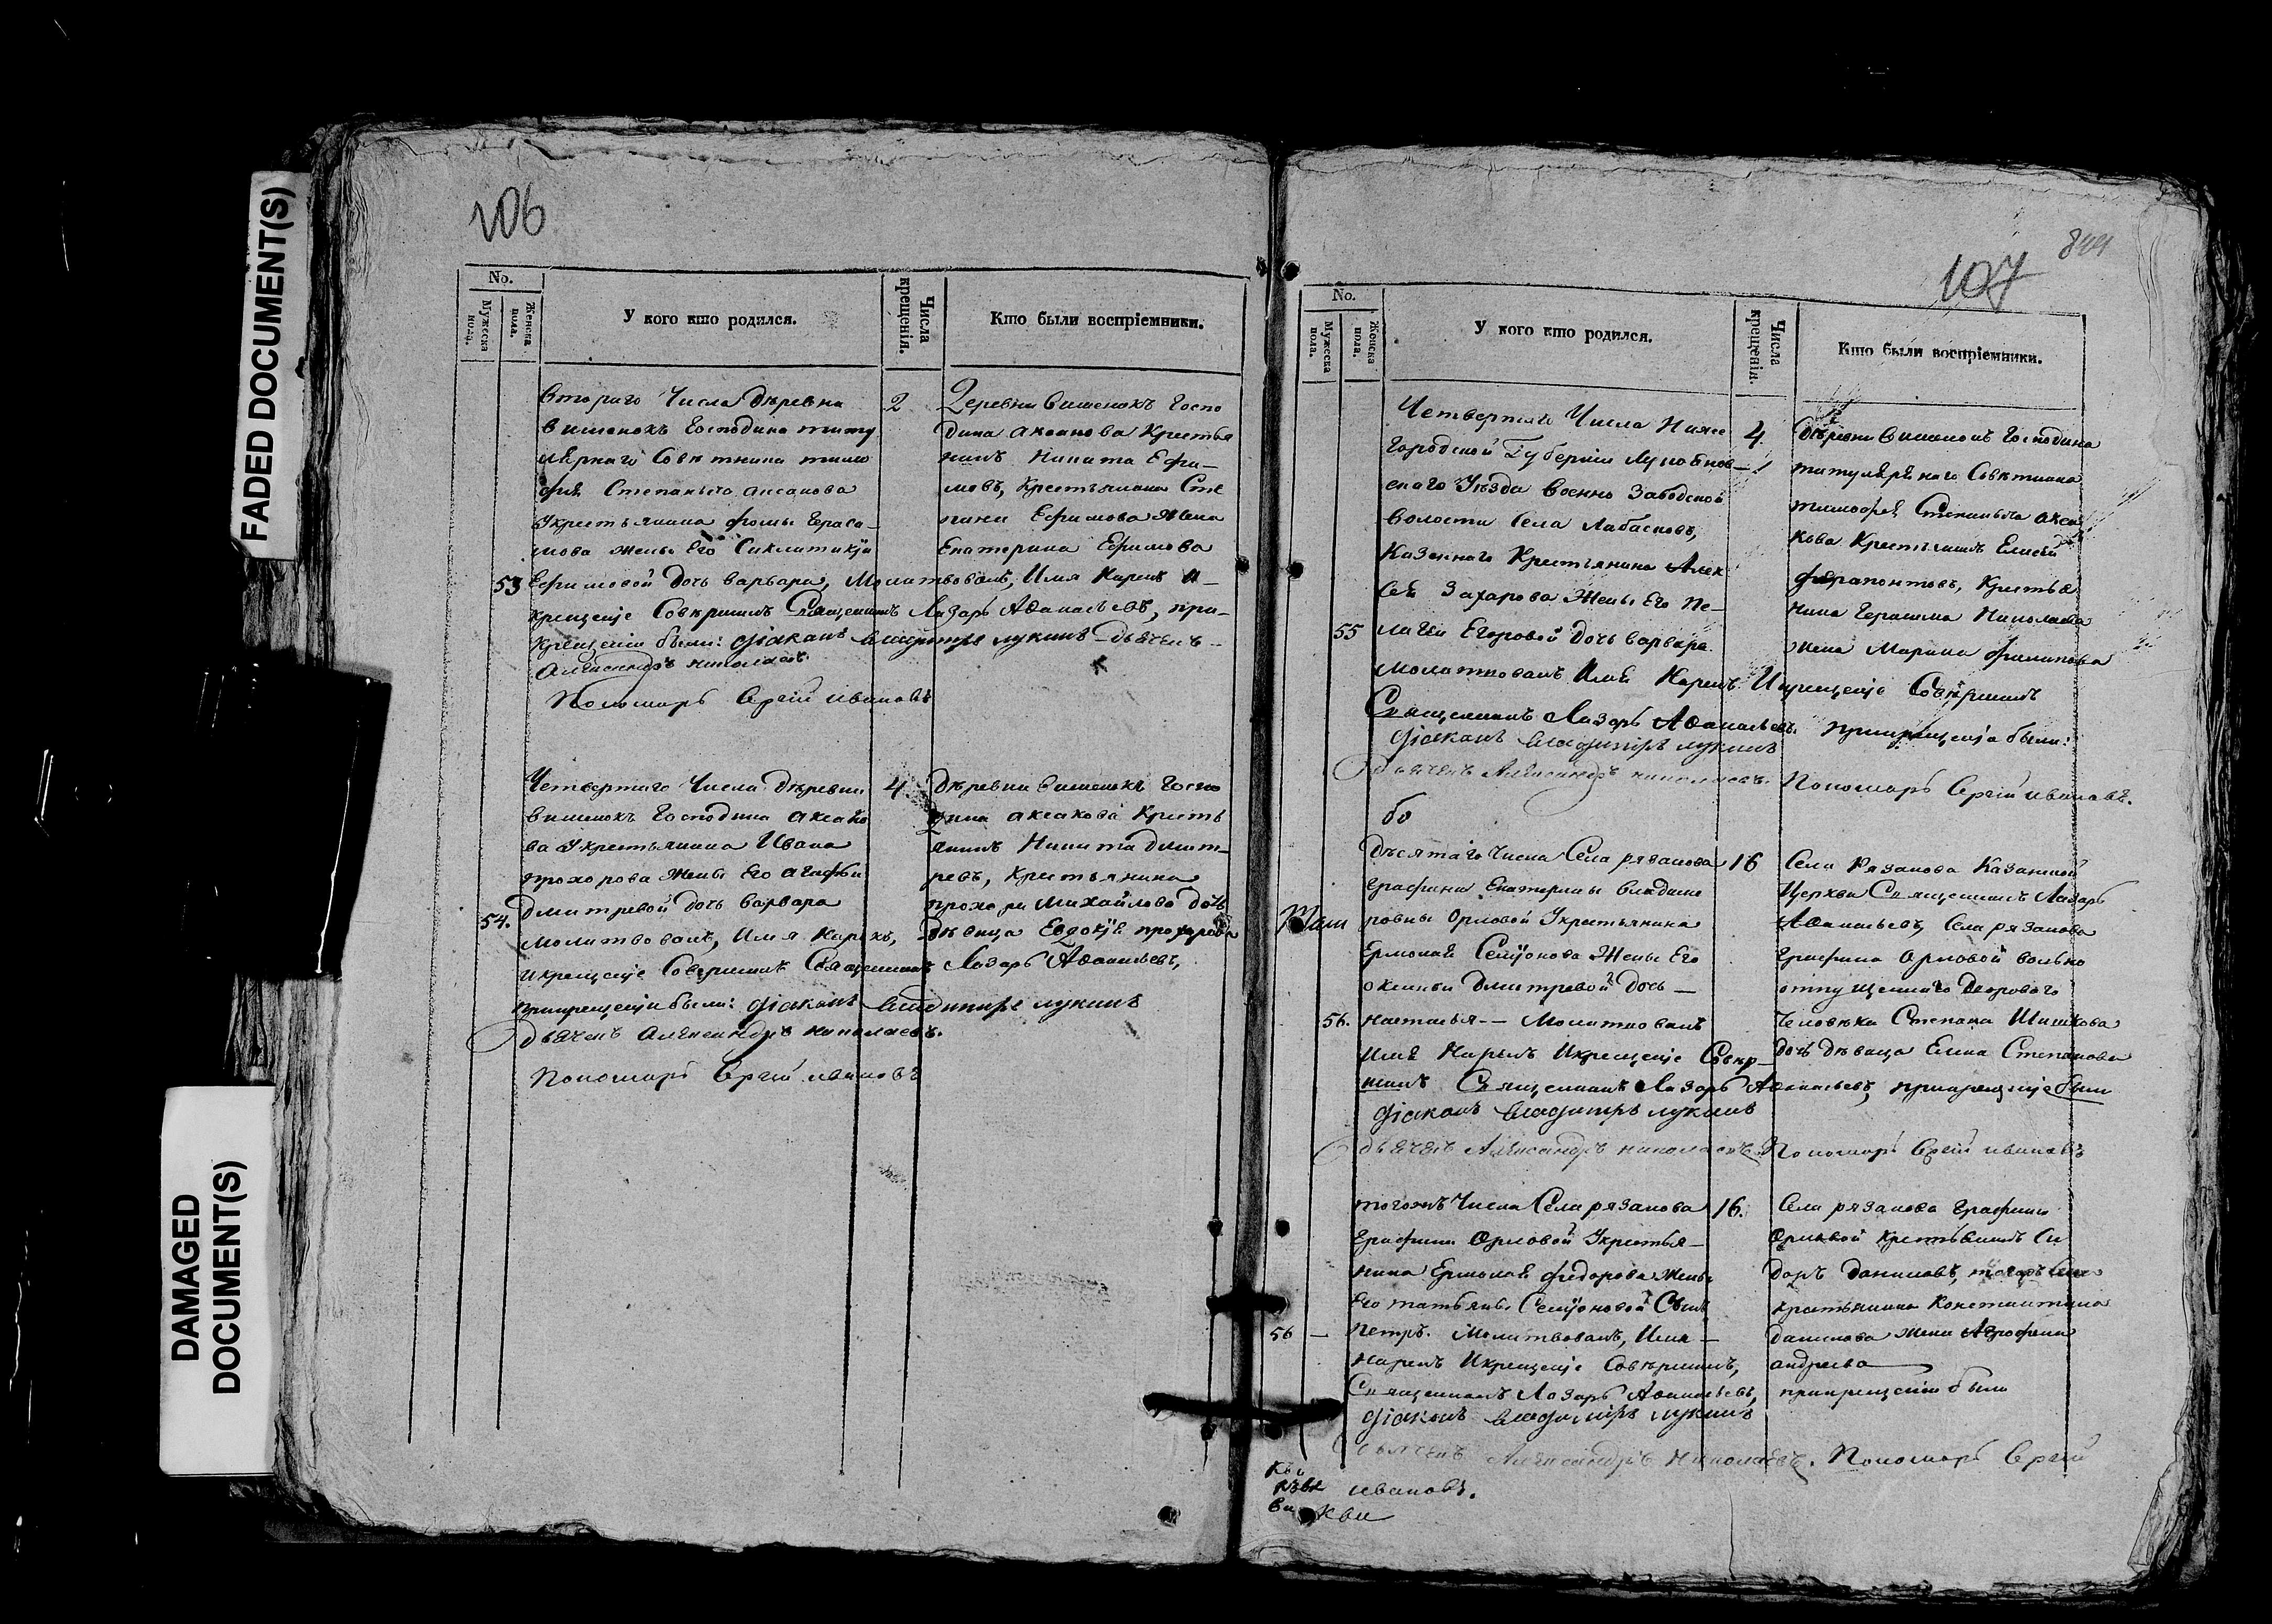 FADED DOCUMENT(S)
DAMAGED DOCUMENT(S)
106
No.
Мужеска пола.
Женска пола.
У кого кто родился.
Числа крещенія.
Кто были воспріемники.
Втораго Числа дѣревни
вишенокъ Господина титу
лярнаго Совѣтника тимо
фѣя Степаныча аксакова
Укрестьянина фомы Гераси-
мова жены Его Сиклитикѣи
53 Ефимовой дочь варвара, Молитвовалъ, Имя Нарекъ и-
крещенје Совѣршилъ Священникъ Лазарь Аѳанасьевъ, при-
крещеніи были: діаканъ владимиръ лукинъ дьячекъ
Александръ николаевъ
Пономарь Сргѣй ивановъ
2
Деревни вишенокъ Госпо
дина аксакова Крестья
нинъ Никита Ефи-
мовъ, Крестьянина Сте
пана Ефимова Жена
Екатерина Ефимова
Четвертаго Числа дѣревни
вишенокъ Господина аксако
ва Укрестьянина Ивана
прохорова жены Его агафьи
дмитревой дочь варвара
54. Молитвовалъ, Имя Нарекъ,
икрещенје Совершилъ Священникъ Лазарь Аѳанасьевъ,
прикрещеніи были: діаканъ владимиръ лукинъ
дьячекъ александръ николаевъ.
Пономарь Сргѣй ивановъ
4
дѣревни вишенокъ Госпо
дина аксакова Кресть
янинъ Никита дмит-
ревъ, Крестьянина
прохора михайлова дочь
дѣвица Евдокѣя прохорова
107
No.
Мужеска пола.
Женска пола.
У кого кто родился.
Числа крещенія.
Кто были воспріемники.
Четвертаго Числа Ниже
городской Губерніи Лукоянов-
скаго Уѣзда
волости Села Лабасковъ,
Казеннаго Крестьянина Алек
сѣя Захарова Жены Его Пе-
55 лагеи Егоровой дочь варвара
молитвовалъ Имя Нарекъ Икрещенје Совѣршилъ
Священникъ Лазарь Аѳанасьевъ. прикрещеніи были:
діаканъ владимиръ лукинъ
дьячекъ Александръ николаевъ. Пономарь Сргѣй ивановъ.
4.
дѣревни вишенокъ Господина
титулярнаго Совѣтника
тимофѣя Степаныча акса
кова Крестьянинъ Елисѣй
фѣрапонтовъ, Крестья
нина Герасима Николаева
жена Марина филипова
Села рязанова
Графини Екатерины владими
ровны Орловой Укрестьянина
Ермолая Семіонова Жены Его
оксиньи дмитревой дочь -
56. настасья -- Молитвовалъ
Имя Нарекъ Икрещенје Совѣр-
шилъ Священникъ Лазарь Аѳанасьевъ, прикрещенје были
діаканъ владимиръ лукинъ
дьячекъ Александръ николаевъ Пономарь Сргѣй ивановъ
16
Села Рязанова Казанской
Церкви Священникъ Лазарь
Аѳанасьевъ, Села рязанова
Графини Орловой вольно
отпущеннаго дворового
Человѣка Степана Шишкова
дочь дѣвица Елена Степанова
тогожъ Числа Села рязанова
Графини Орловой Укрестья-
нина Ермолая федорова жены
Его татьяны Семіоновой Сынъ
56 - Петръ. Молитвовалъ, Имя -
Нарекъ Икрещенје Совѣршилъ,
Священникъ Лазарь Аѳанасьевъ,
діаканъ владимиръ лукинъ
дьячекъ Александръ Николаевъ. Пономарь Сргѣй
ивановъ.
16.
Села рязанова Графини
Орловой Крестьянинъ Си
доръ даниловъ,
крестьянина Константина
данилова жена
андреева
прикрещеніи были